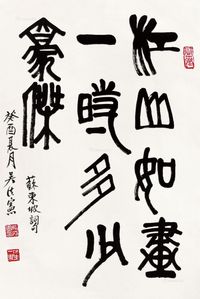 江山如畫
一時多少
豪傑
蘇東坡詞
癸酉夏月吳法憲